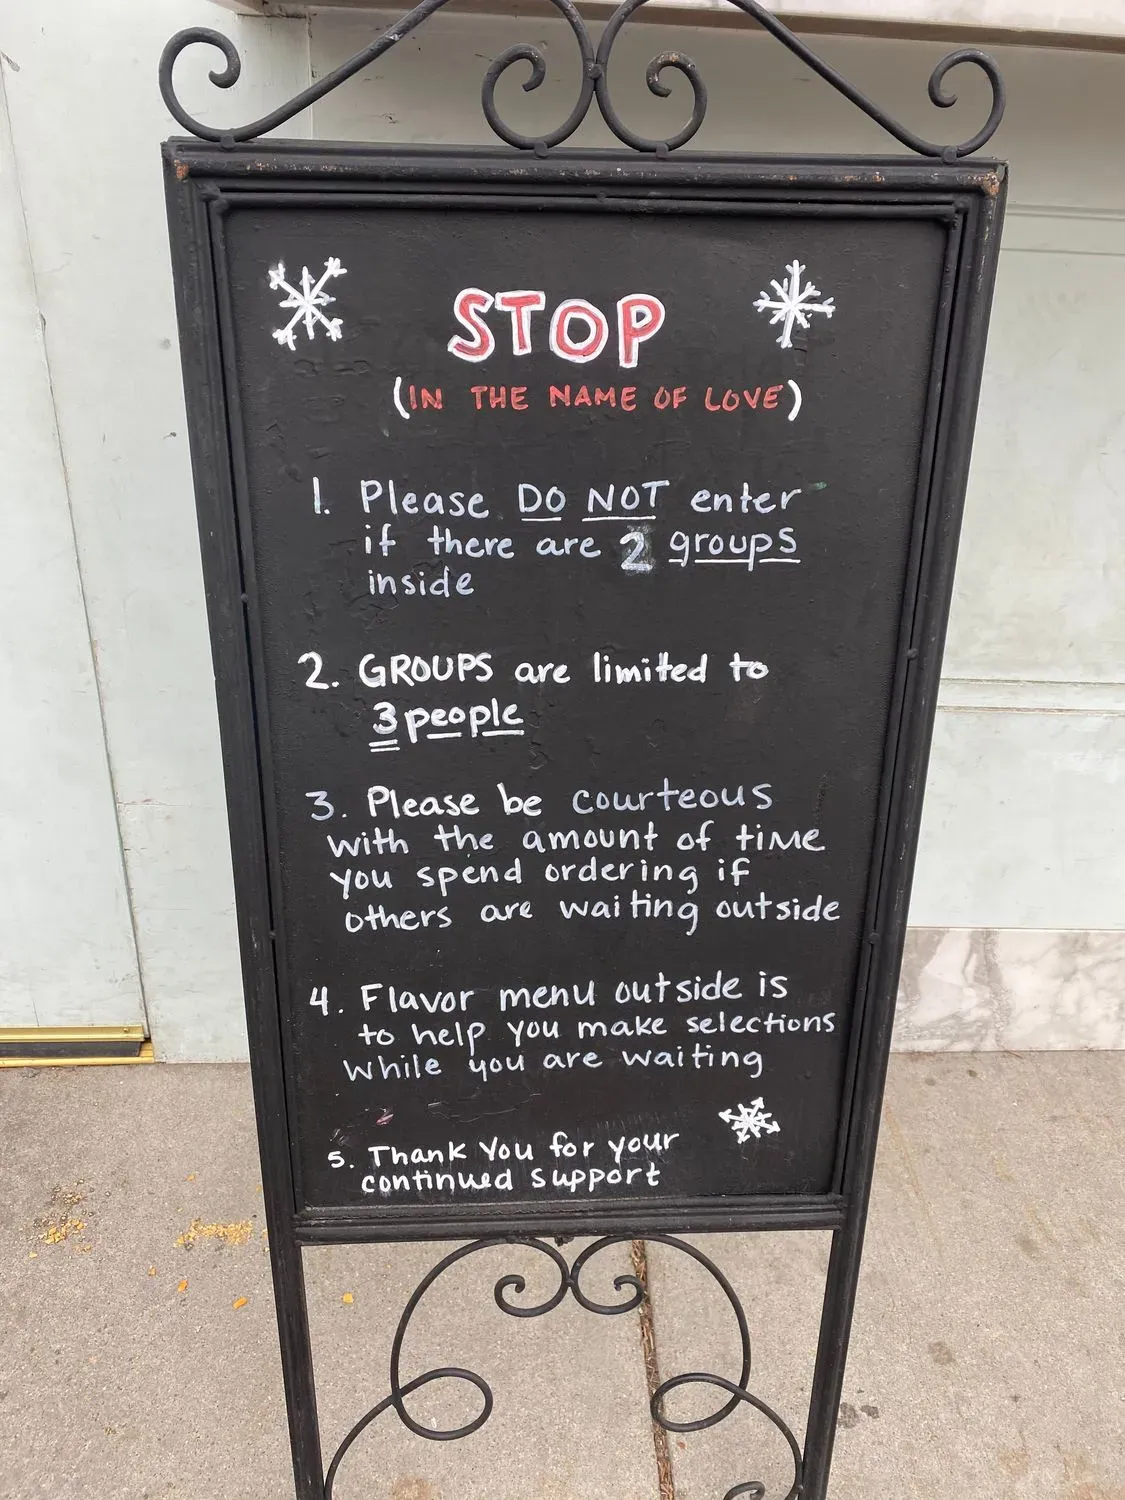 STOP
(IN THE NAME OF LOVE)
1. Please DO NOT enter
if there are 2 groups
inside
2. GROUPS are limited to
3 people
3. Please be courteous
with the amount of time
you spend ordering if
others are waiting outside
4. Flavor menu outside is
to help you make selections
while you are waiting
5. Thank You for your
continued support